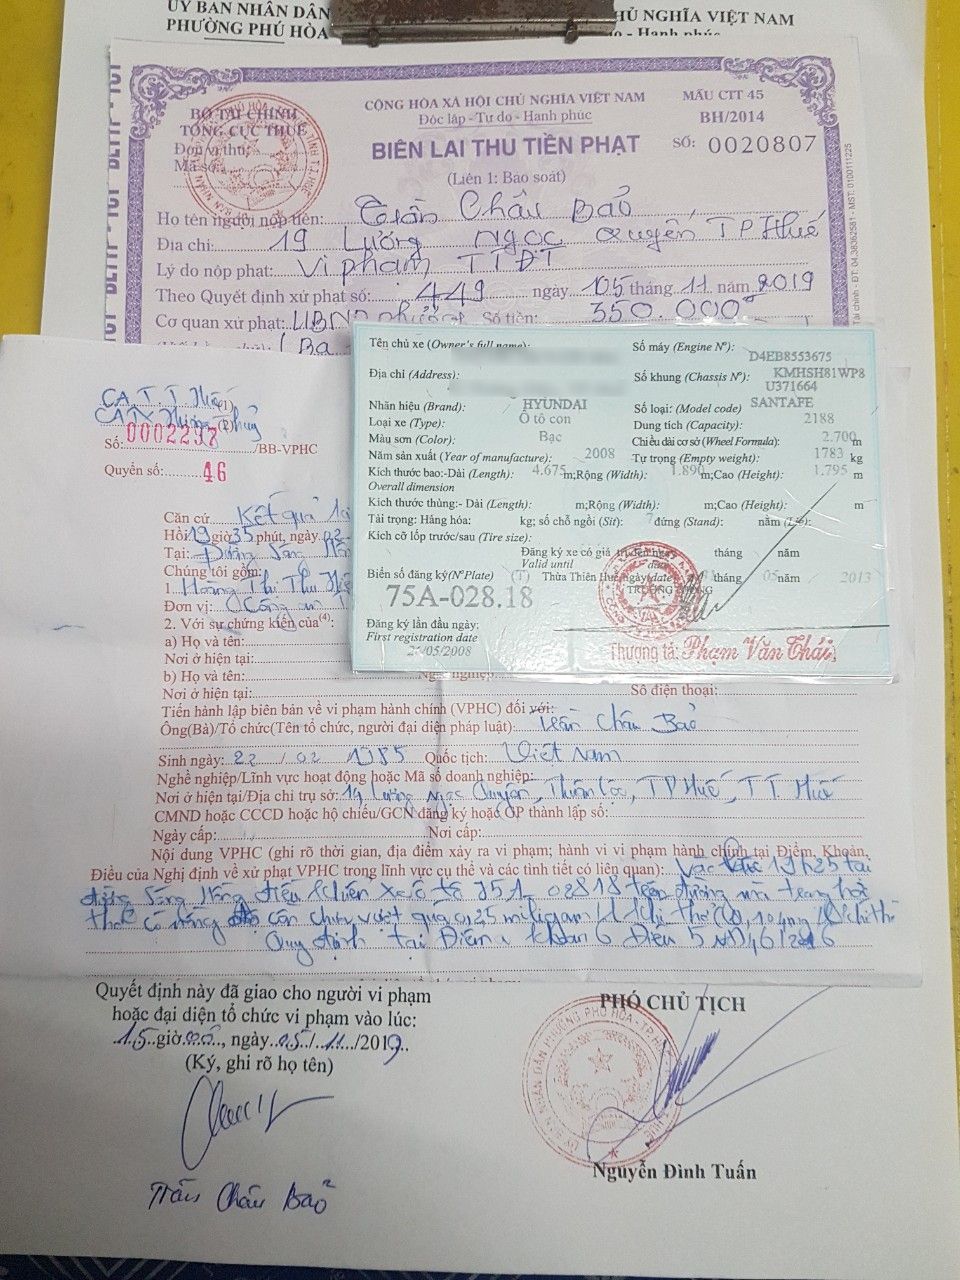 ỦY BAN NHÂN DÂN
PHƯỜNG PHÚ HÒA
CHỦ NGHĨA VIỆT NAM
do - Hạnh phúc
BỘ TÀI CHÍNH
TỔNG CỤC THUẾ
Đơn vị thu:
Mã số:
CỘNG HÒA XÃ HỘI CHỦ NGHĨA VIỆT NAM
Độc lập - Tự do - Hạnh phúc
BIÊN LAI THU TIỀN PHẠT
(Liên 1: Báo soát)
MẪU CTT 45
BH/2014
SỐ: 0020807
Họ tên người nộp tiền: Trần Châu Bảo
Địa chỉ: 19 Lương Ngọc Quyến TP Huế
Lý do nộp phạt: Vi phạm TTĐT
Theo Quyết định xử phạt số: 449 ngày 05 tháng 11 năm 2019
Cơ quan xử phạt: UBND phường Số tiền: 350.000đ
Tên chủ xe (Owner's full name):
Địa chỉ (Address):
Số máy (Engine Nº): D4EB8553675
Số khung (Chassis Nº): KMHSH81WP8
U371664
Nhãn hiệu (Brand): HYUNDAI
Số loại: (Model code) SANTAFE
Loại xe (Type): Ô tô con
Dung tích (Capacity): 2188
Màu sơn (Color): Bạc
Chiều dài cơ sở (Wheel Formula): 2.700 m
Năm sản xuất (Year of manufacture): 2008
Tự trọng (Empty weight): 1783 kg
Kích thước bao: -Dài (Length): 4.675 m;Rộng (Width): 1.890 m;Cao (Height): 1.795 m
Overall dimension
Kích thước thùng:- Dài (Length): m;Rộng (Width): m;Cao (Height): m
Tải trọng: Hàng hóa: kg; số chỗ ngồi (Sit): 7 đứng (Stand): nằm (Lie):
Kích cỡ lốp trước/sau (Tire size):
Đăng ký xe có giá trị đến ngày tháng năm
Valid until date
Biển số đăng ký(Nº Plate) (T) Thừa Thiên Huế, ngày(date tháng 05 năm 2013
75A-028.18
TRƯỞNG PHÒNG
Đăng ký lần đầu ngày:
First registration date
/05/2008
Thượng tá: Phạm Văn Thái
CA.T.T Huế (1)
CATX Hương Thủy (2)
Số: 0002297 /BB-VPHC
Quyển số: 46
Căn cứ Kết quả
Hồi 19 giờ 35 phút, ngày
Tại: Đường Sóng Hồng
Chúng tôi gồm:
1. Hoàng Thị Thu
Đơn vị: Công an
2. Với sự chứng kiến của(4):
a) Họ và tên:
Nơi ở hiện tại:
b) Họ và tên: Nghề nghiệp:
Nơi ở hiện tại: Số điện thoại:
Tiến hành lập biên bản về vi phạm hành chính (VPHC) đối với:
Ông(Bà)/Tổ chức(Tên tổ chức, người đại diện pháp luật): Trần Châu Bảo
Sinh ngày: 22 / 02 / 1985 Quốc tịch: Việt Nam
Nghề nghiệp/Lĩnh vực hoạt động hoặc Mã số doanh nghiệp:
Nơi ở hiện tại/Địa chỉ trụ sở: 19 Lương Ngọc Quyến, Thuận Lộc, TP Huế, TT Huế
CMND hoặc CCCD hoặc hộ chiếu/GCN đăng ký hoặc QP thành lập số:
Ngày cấp: Nơi cấp:
Nội dung VPHC (ghi rõ thời gian, địa điểm xảy ra vi phạm; hành vi vi phạm hành chính tại Điểm, Khoản,
Điều của Nghị định về xử phạt VPHC trong lĩnh vực cụ thể và các tình tiết có liên quan): Vào lúc 19h25 tại
đường Sóng Hồng điều khiển xe ô tô 75A-02818 trên đường mà trong hơi
thở có nồng độ cồn chưa vượt quá 0,25 miligam/1 lít khí thở
Quy định tại Điểm a khoản 6 Điều 5 NĐ46/2016
Quyết định này đã giao cho người vi phạm
hoặc đại diện tổ chức vi phạm vào lúc:
15 giờ 00, ngày 05/11/2019
(Ký, ghi rõ họ tên)
Trần Châu Bảo
PHÓ CHỦ TỊCH
Nguyễn Đình Tuấn